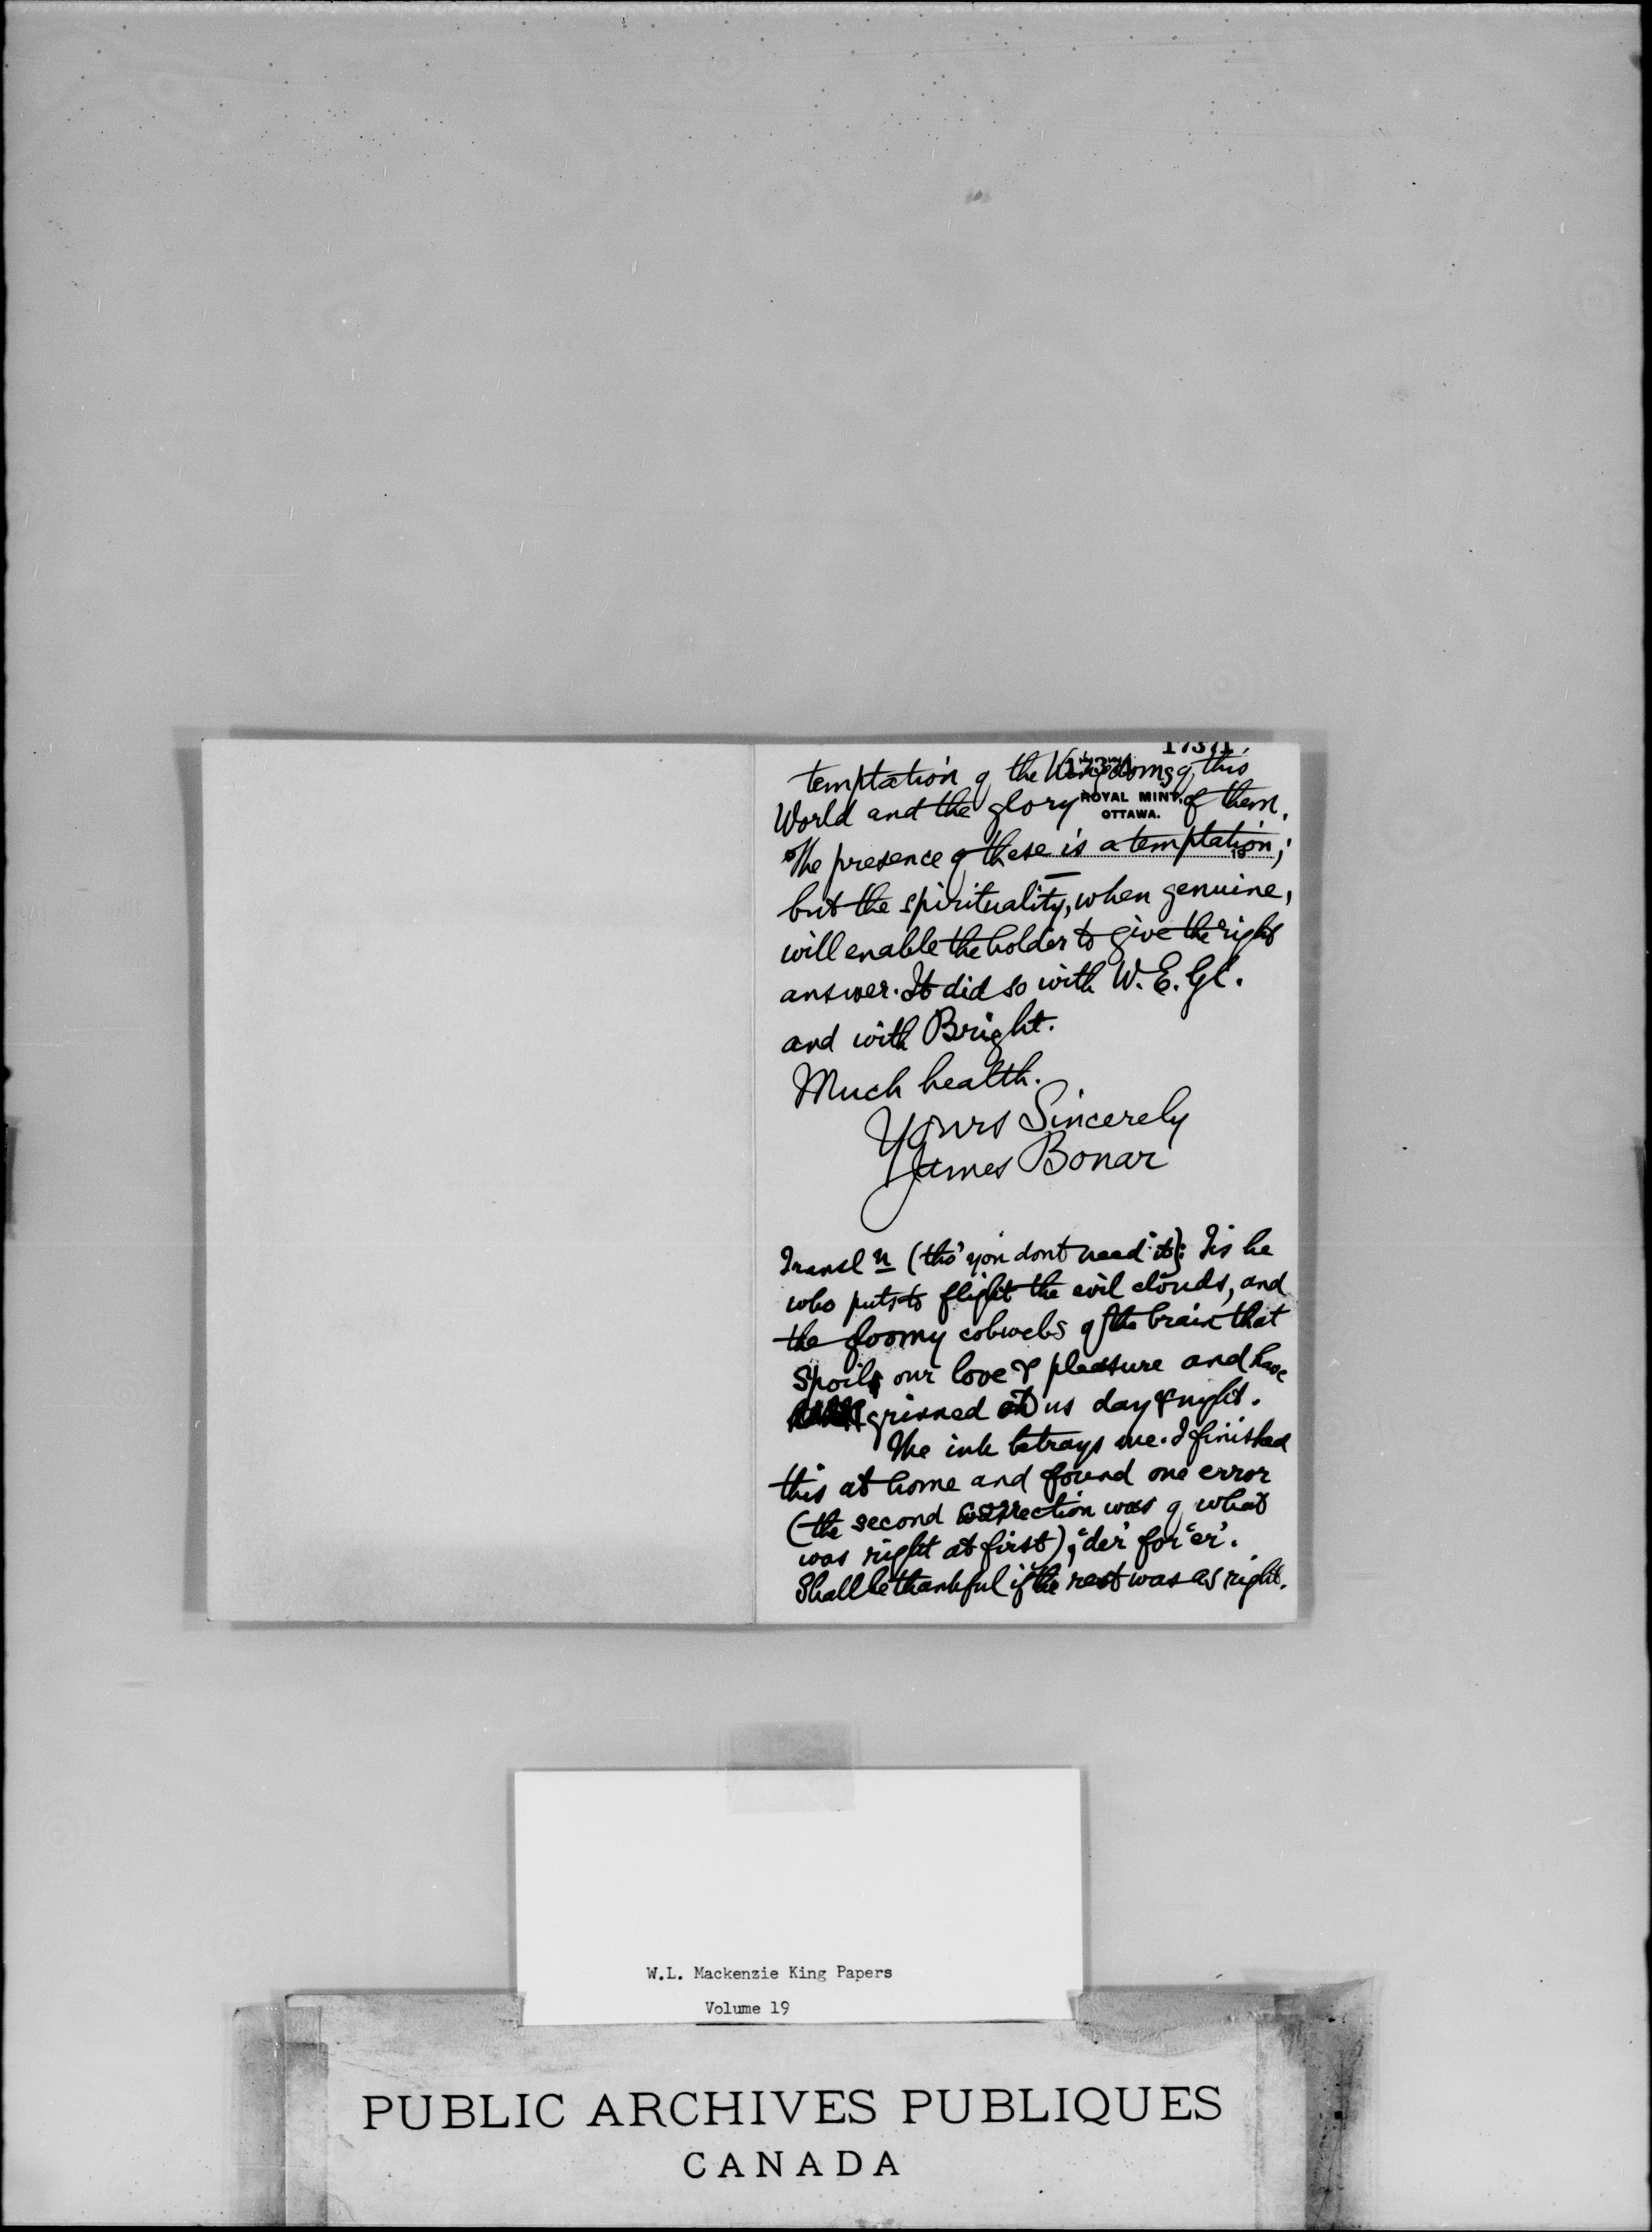 17371.
temptation of the Kingdoms of this
World and the glory of them.
ROYAL MINT,
OTTAWA.
The presence of these is a temptation;
19
but the spirituality, when genuine,
will enable the holder to give the right
answer. It did so with W. E. Gl.
and with Bright.
Much health.
Yours Sincerely
James Bonar
Transl n (tho' you dont need it): Tis he
who puts to flight the evil clouds, and
the gloomy cobwebs of the brain that
spoils our love & pleasure and have
grinned at us day & night.
The ink betrays me. I finished
this at home and found one error
(the second correction was of what
was right at first), 'der' for 'er'.
Shall be thankful if the rest was as right.
W.L. Mackenzie King Papers
Volume 19
PUBLIC ARCHIVES PUBLIQUES
CANADA